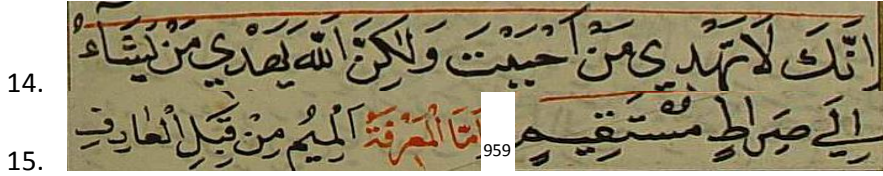 14. اِنَّكَ لَا تَهْدِي مَنْ اَحْبَبْتَ وَلٰكِنَّ اللّٰهَ يَهْدِي مَنْ يَشَآءُ
15. اِلَي صِرَاطٍ مُسْتَقِيمٍ 959 اَمَّا الْمَعْرِفَةُ اَلْمِيمُ مِنْ قِبَلِ الْعَارِفِ